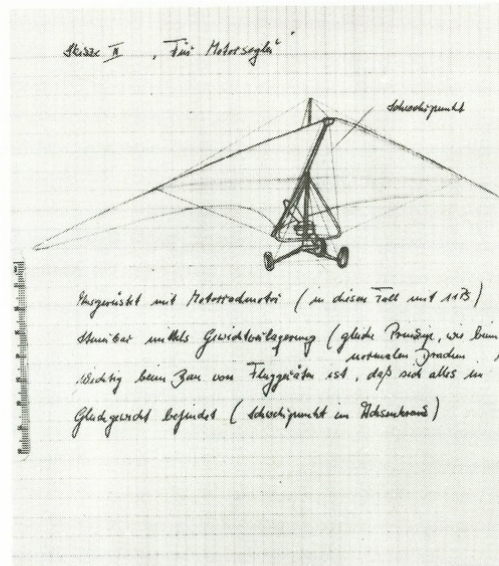 Skizze II „Für Motorsegler“
Schwerpunkt
Ausgerüstet mit Motorradmotor (in diesem Fall mit
Steuerbar mittels Gewichtverlagerung (gleiche Prinzip, wie beim
normalen Drachen
Wichtig beim Bau von Fluggeräten ist, daß sich alles im
Gleichgewicht befindet (Schwerpunkt im Achsenkreuz)